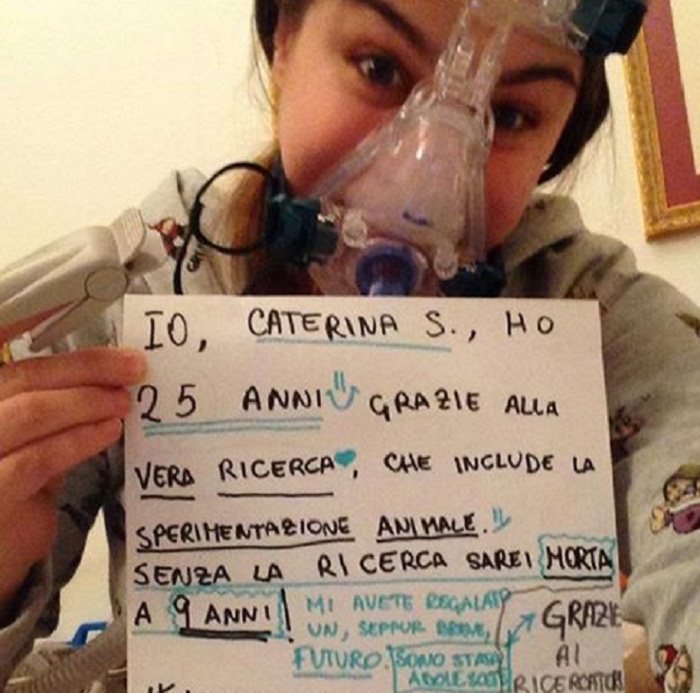 IO, CATERINA S., HO
25 ANNI GRAZIE ALLA
VERA RICERCA, CHE INCLUDE LA
SPERIMENTAZIONE ANIMALE.
SENZA LA RICERCA SAREI MORTA
A 9 ANNI!
MI AVETE REGALATO
UN, SEPPUR BREVE,
FUTURO.
SONO STATA
ADOLESC
GRAZIE
AI
RICERCATORI